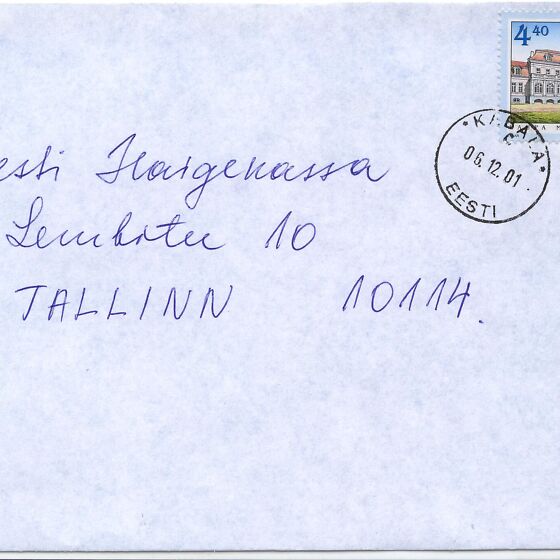 4 40
KABALA
06.12.01
EESTI
esti Haigekassa
Lembitu 10
TALLINN 10114.